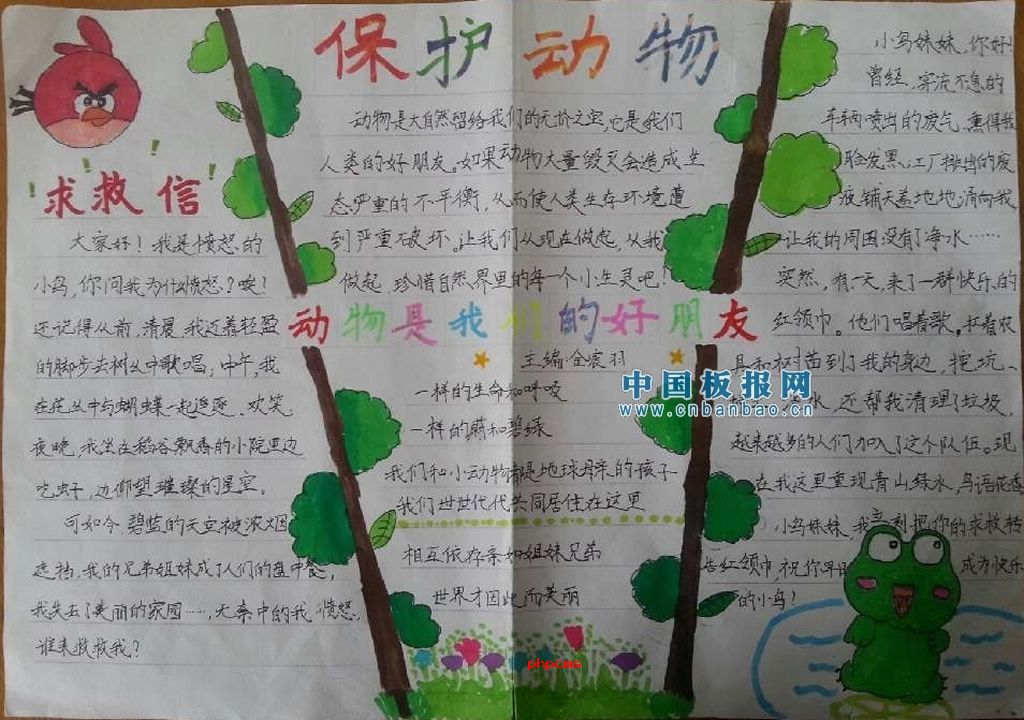 保护动物
动物是大自然留给我们的无价之宝,它是我们
人类的好朋友。如果动物大量毁灭会造成生
态严重的不平衡,从而使人类生存环境遭
到严重破坏。让我们从现在做起,从我
做起,珍惜自然界里的每一个小生灵吧!
求救信
大家好!我是愤怒的
小鸟,你问我为什么愤怒?唉!
还记得从前,清晨,我迈着轻盈
的脚步去树丛中歌唱;中午,我
在花丛中与蝴蝶一起追逐、欢笑
夜晚,我坐在稻谷飘香的小院里边
吃虫子,边仰望璀璨的星空。
可如今,碧蓝的天空被浓烟
遮挡,我的兄弟姐妹成了人们的盘中餐,
我失去了美丽的家园……,大家中的我,愤怒,
谁来救救我?
动物是我们的好朋友
主编:金宸羽
一样的生命和呼吸
一样的蔚和碧绿
我们和小动物都是地球母亲的孩子
我们世世代代共同居住在这里
相互依存亲如姐妹兄弟
世界才因此而美丽
小鸟妹妹,你好!
曾经,穿流不息的
车辆喷出的废气,熏得我
脸发黑,工厂排出的废
液铺天盖地地涌向我
让我的周围没有了净水……
突然,有一天,来了一群快乐的
红领巾。他们唱着歌。扛着农
具和树苗到了我的身边,挖坑、
水,还帮我清理了垃圾,
越来越多的人们加入了这个队伍。现
在我这里重现青山绿水,鸟语花香
小鸟妹妹,我立刻把你的求救转
告红领巾,祝你早日
成为快乐
的小鸟!
中国板报网
www.cnbanbao.cn
phpcms